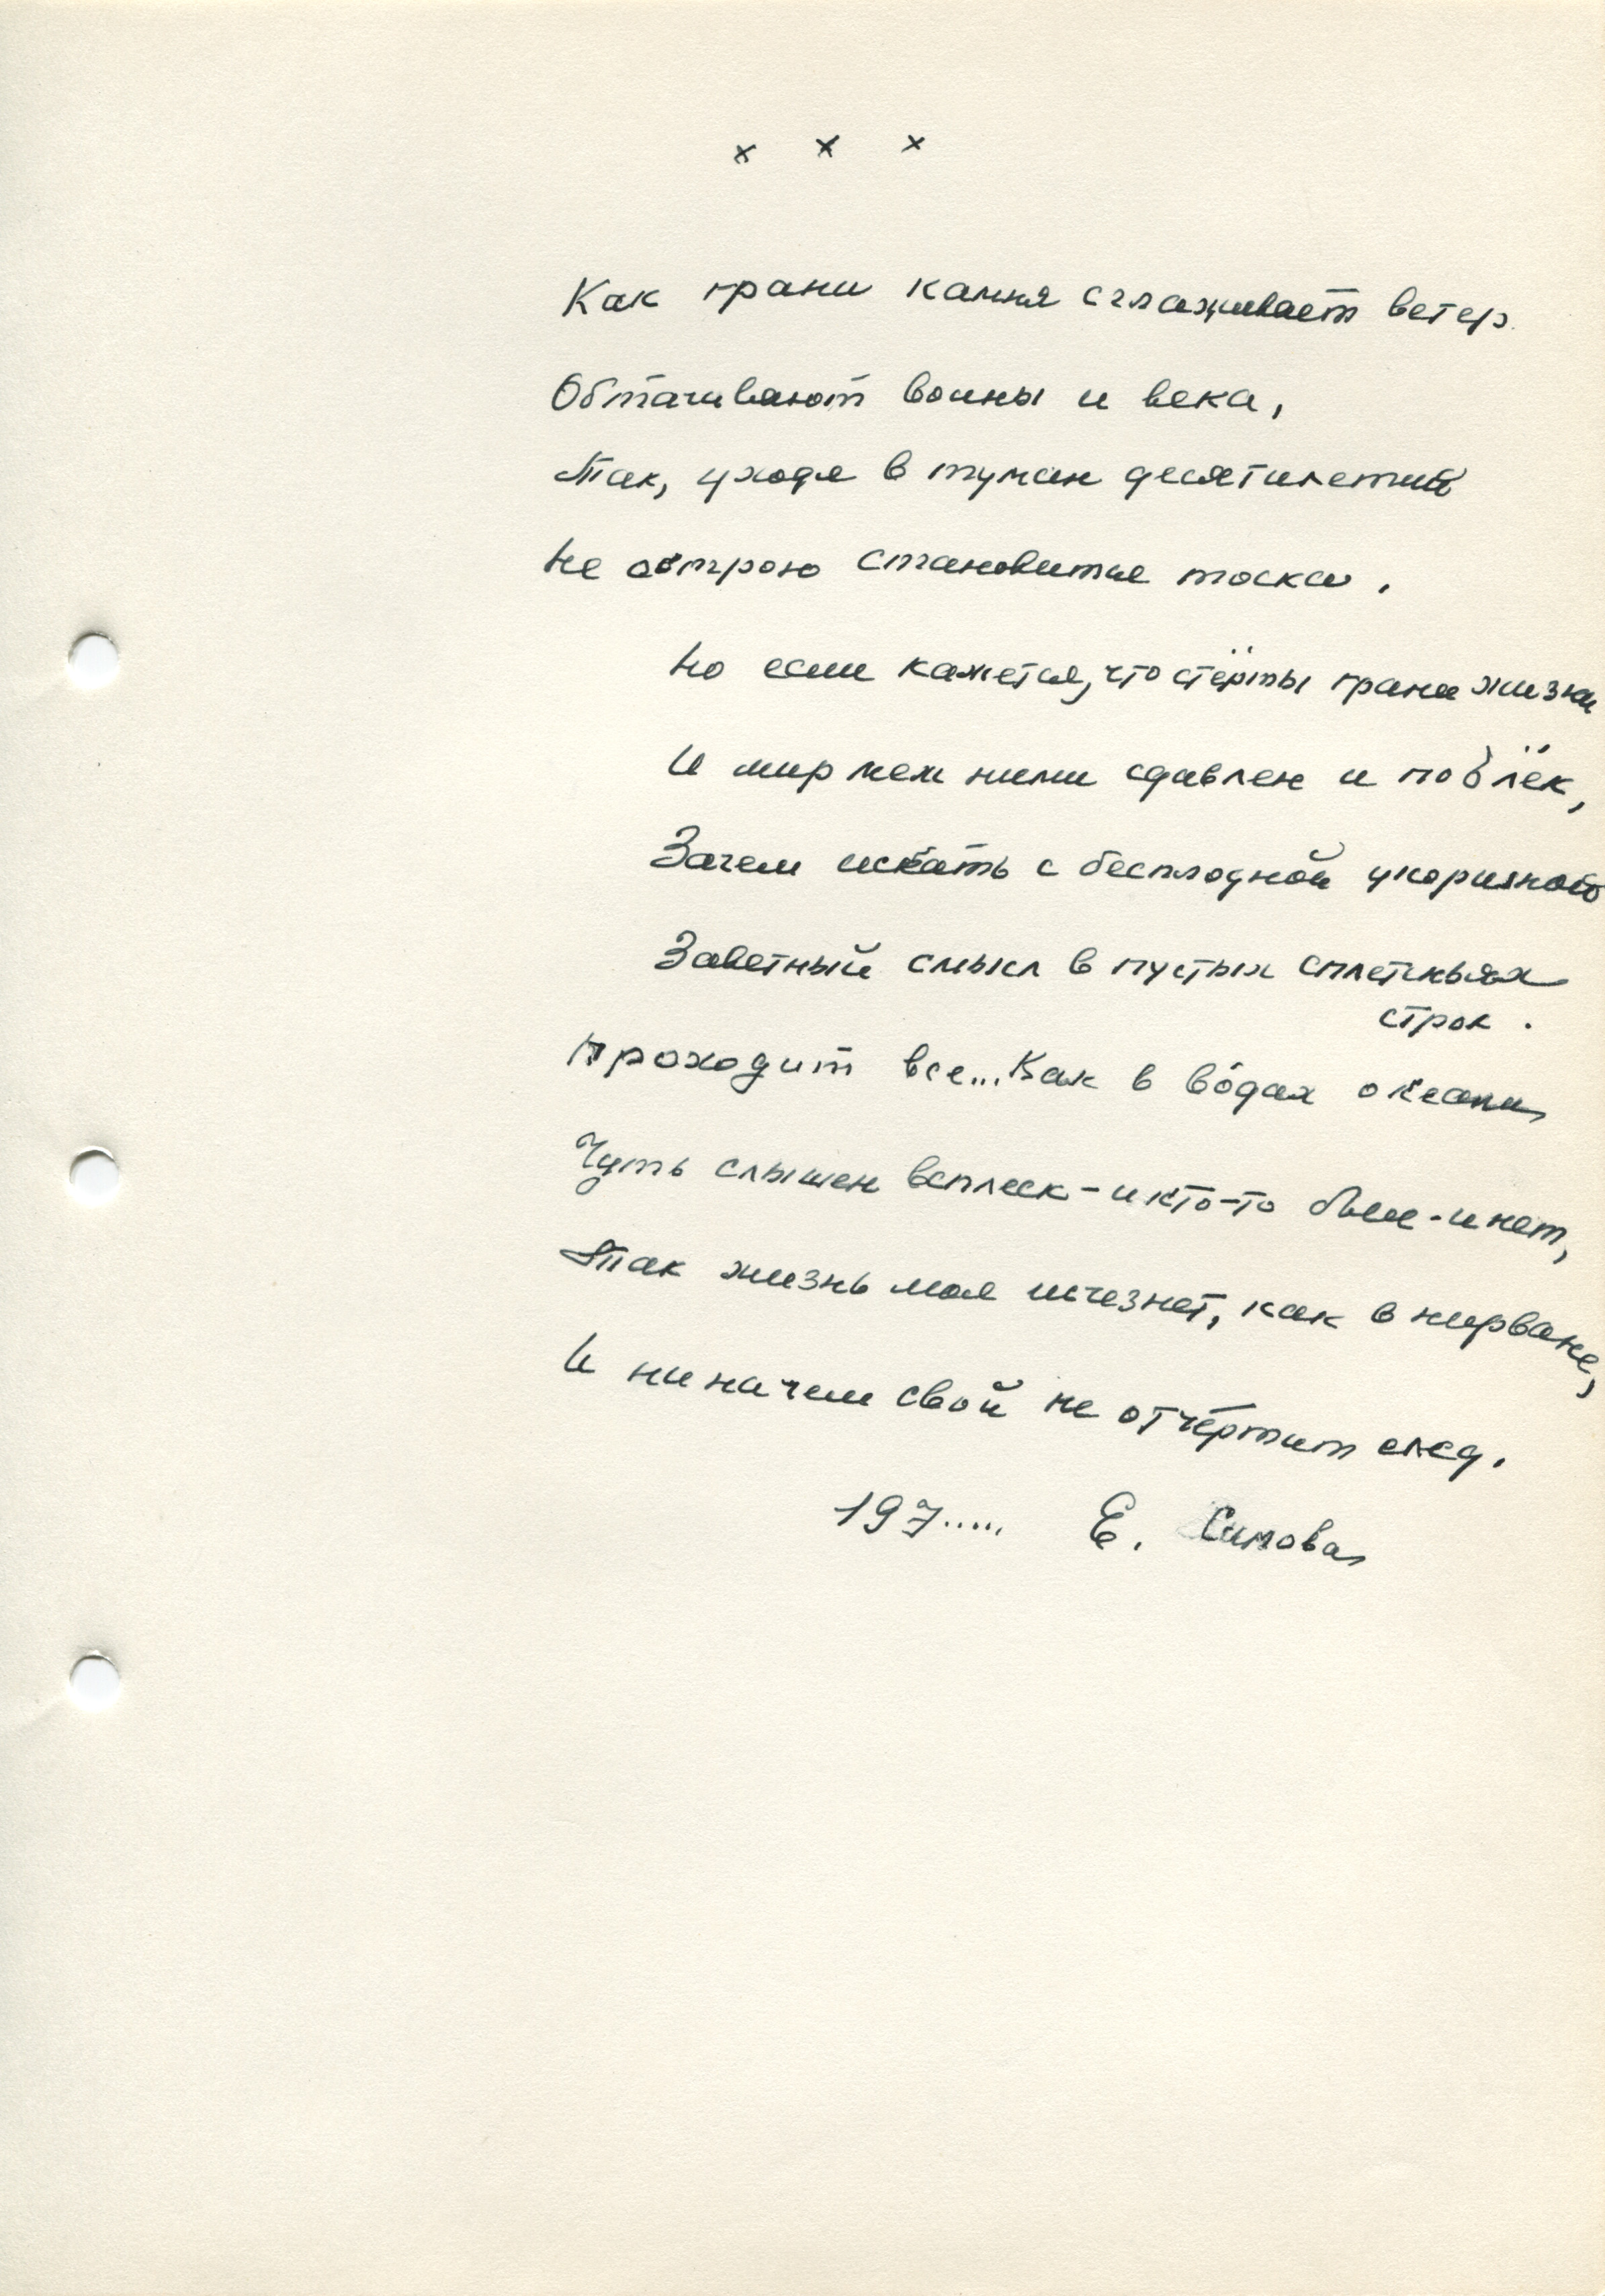 х х х
Как грани камня сглаживает ветер
Обтачивают волны и века,
Так, уходя в туман десятилетий
Не острою становится тоска.
Но если кажется, что стёрты грани жизни
И мир меж ними сдавлен и поблёк,
Зачем искать с бесплодной укоризною
Заветный смысл в пустых сплетеньях
строк.
Проходит все... Как в во́дах океана
Чуть слышен всплеск - и кто-то был - и нет,
Так жизнь моя исчезнет, как в нирване,
И ни на чем свой не отче́ртит след.
197..... Е.